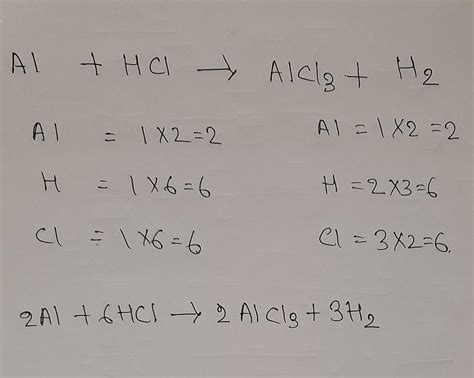 Al + HCl → AlCl₃ + H₂
Al = 1×2=2 Al = 1×2=2
H = 1×6=6 H=2×3=6
Cl = 1×6=6 Cl=3×2=6.
2Al+6HCl → 2AlCl₃+3H₂